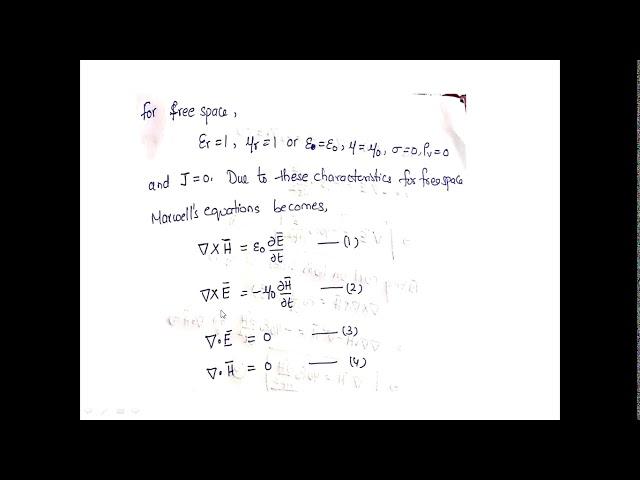 for free space,
εr=1, μr=1 or ε=ε0, μ=μ0, σ=0, ρv=0
and J=0. Due to these characteristics for free space
Maxwell's equations becomes,
∇×H̄ = ε0 ∂Ē/∂t —(1)
∇×Ē = -μ0 ∂H̄/∂t —(2)
∇•Ē = 0 —(3)
∇•H̄ = 0 —(4)